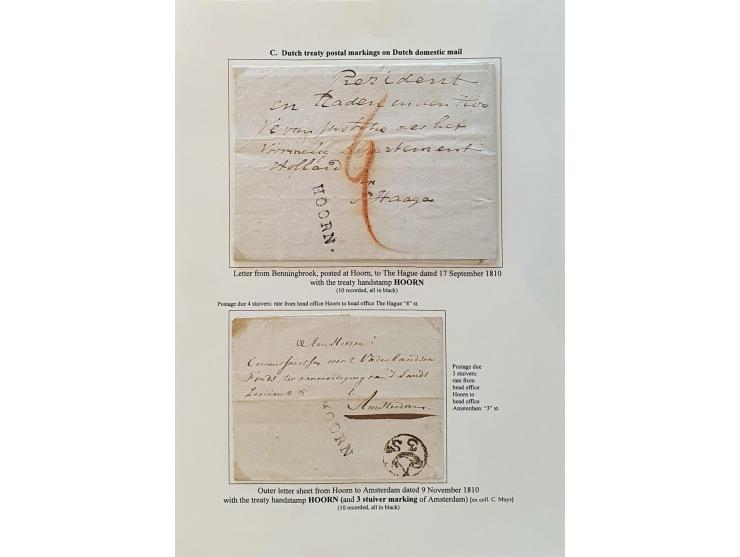 C. Dutch treaty postal markings on Dutch domestic mail
President
en Raaden in den Hoo
Ve van Justitie over het
Voormalig Departement
Holland
in
S' Haage
HOORN.
Letter from Benningbroek, posted at Hoorn, to The Hague dated 17 September 1810
with the treaty handstamp HOORN
(10 recorded, all in black)
Postage due 4 stuivers: rate from head office Hoorn to head office The Hague "4" st.
Aan Heeren!
Commissarissen over't Vaderlandsch
Fonds ter aanmoediging van 's Lands
Zeedienst
te
Amsterdam.
HOORN
3 S
Postage due
3 stuivers:
rate from
head office
Hoorn to
head office
Amsterdam: "3" st.
Outer letter sheet from Hoorn to Amsterdam dated 9 November 1810
with the treaty handstamp HOORN (and 3 stuiver marking of Amsterdam) [ex coll. C. Muys]
(10 recorded, all in black)